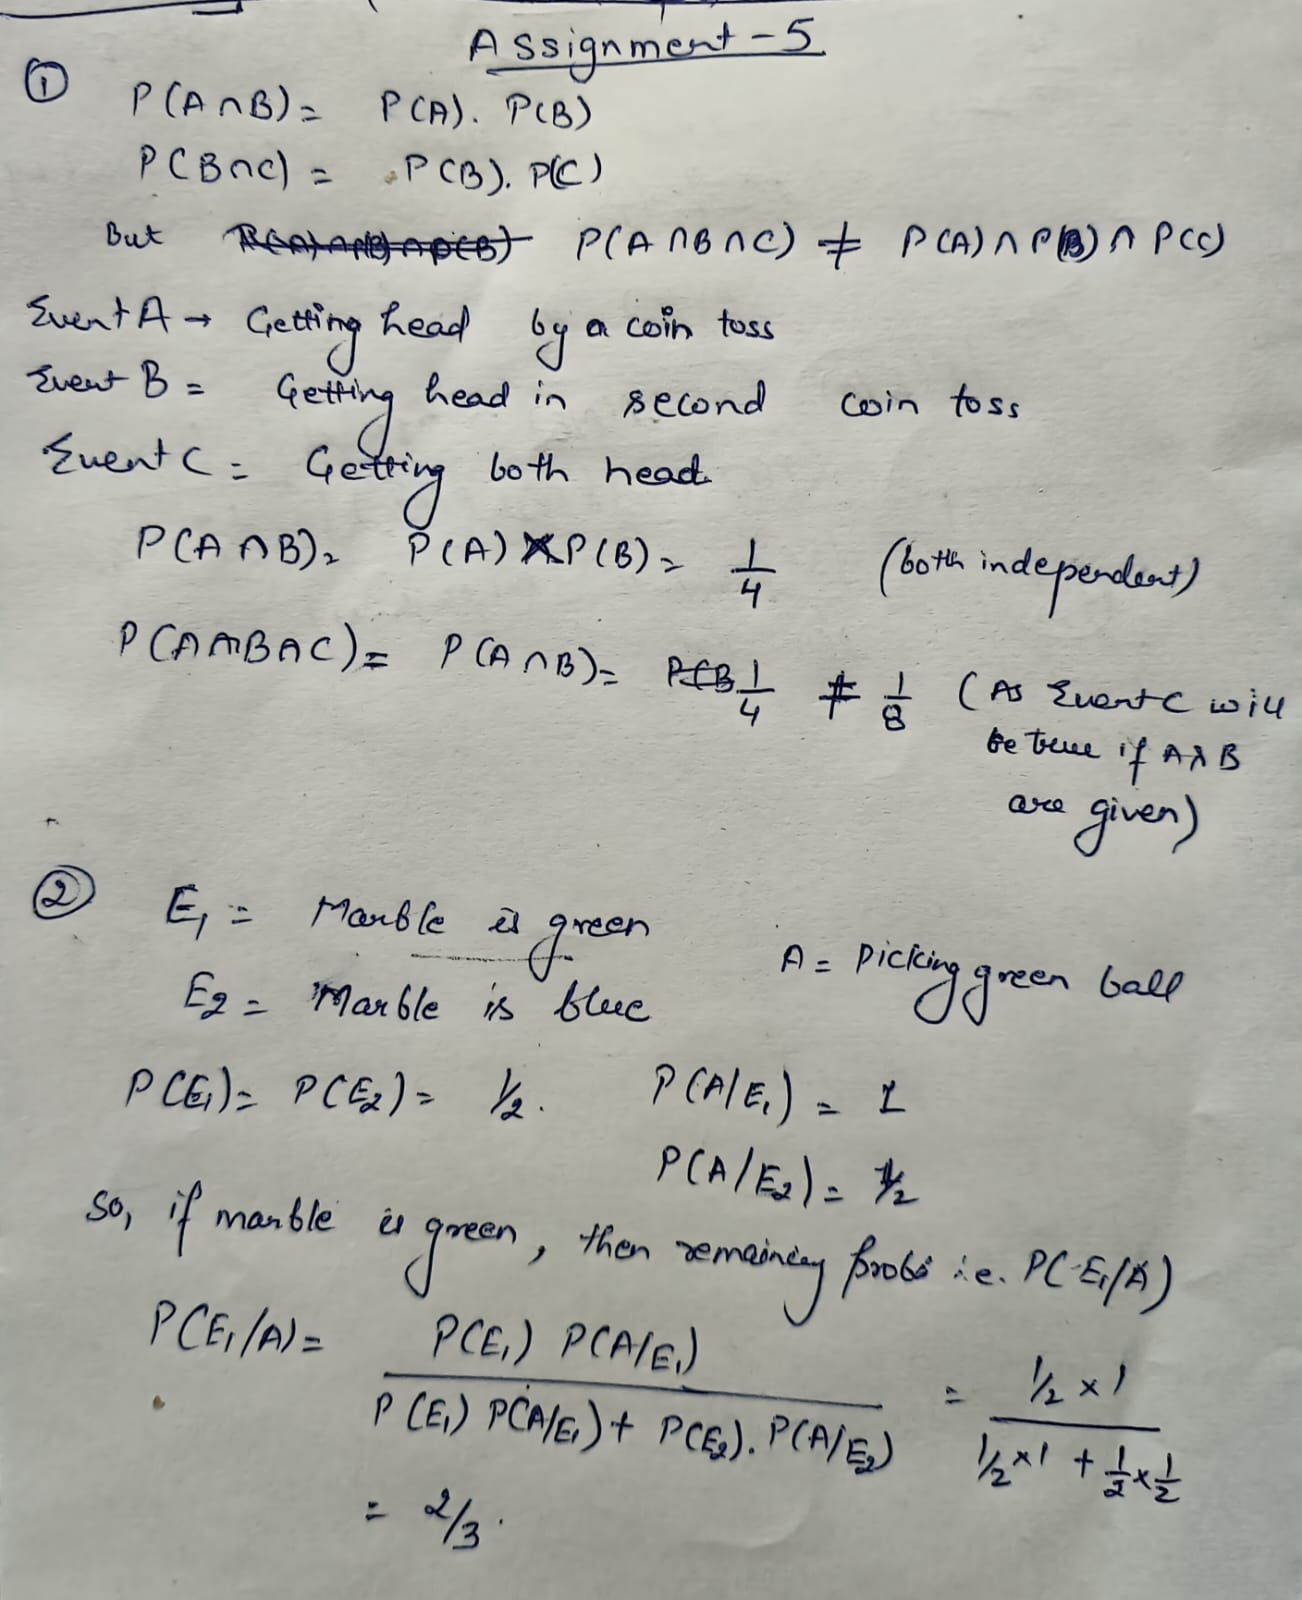 Assignment - 5
①
P(A∩B) = P(A). P(B)
P(B∩C) = P(B). P(C)
But P(A∩B∩C) ≠ P(A)∩P(B)∩P(C)
Event A → Getting head by a coin toss
Event B = Getting head in second coin toss
Event C = Getting both head
P(A∩B) = P(A) X P(B) = 1/4 (both independent)
P(A∩B∩C) = P(A∩B) = 1/4 ≠ 1/8 (As Event C will
be true if A & B
are given)
②
E₁ = Marble is green
A = Picking green ball
E₂ = Marble is blue
P(E₁) = P(E₂) = 1/2. P(A/E₁) = 1
P(A/E₂) = 1/2
So, if marble is green, then remaining prob. i.e. P(E₁/A)
P(E₁/A) = P(E₁) P(A/E₁) / P(E₁) P(A/E₁) + P(E₂). P(A/E₂) = 1/2 x 1 / 1/2 x 1 + 1/2 x 1/2
= 2/3.